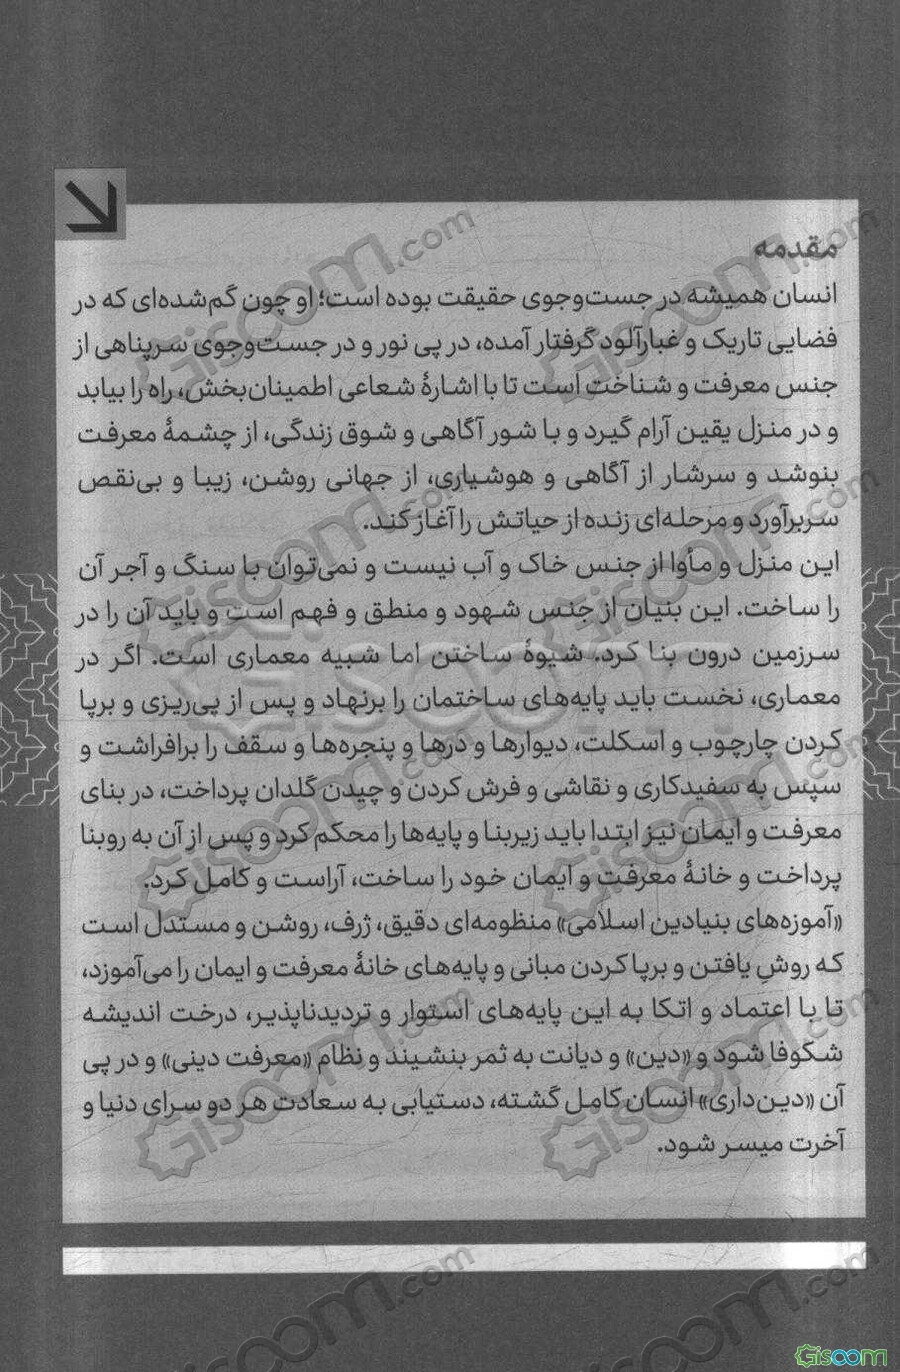 مقدمه
انسان همیشه در جست‌وجوی حقیقت بوده است؛ او چون گم‌شده‌ای که در
فضایی تاریک و غبارآلود گرفتار آمده، در پی نور و در جست‌وجوی سرپناهی از
جنس معرفت و شناخت است تا با اشارهٔ شعاعی اطمینان‌بخش، راه را بیابد
و در منزل یقین آرام گیرد و با شور آگاهی و شوق زندگی، از چشمهٔ معرفت
بنوشد و سرشار از آگاهی و هوشیاری، از جهانی روشن، زیبا و بی‌نقص
سربرآورد و مرحله‌ای زنده از حیاتش را آغاز کند.
این منزل و مأوا از جنس خاک و آب نیست و نمی‌توان با سنگ و آجر آن
را ساخت. این بنیان از جنس شهود و منطق و فهم است و باید آن را در
سرزمین درون بنا کرد. شیوهٔ ساختن اما شبیه معماری است. اگر در
معماری، نخست باید پایه‌های ساختمان را برنهاد و پس از پی‌ریزی و برپا
کردن چارچوب و اسکلت، دیوارها و درها و پنجره‌ها و سقف را برافراشت و
سپس به سفیدکاری و نقاشی و فرش کردن و چیدن گلدان پرداخت، در بنای
معرفت و ایمان نیز ابتدا باید زیربنا و پایه‌ها را محکم کرد و پس از آن به روبنا
پرداخت و خانهٔ معرفت و ایمان خود را ساخت، آراست و کامل کرد.
«آموزه‌های بنیادین اسلامی» منظومه‌ای دقیق، ژرف، روشن و مستدل است
که روشِ یافتن و برپا کردن مبانی و پایه‌های خانهٔ معرفت و ایمان را می‌آموزد،
تا با اعتماد و اتکا به این پایه‌های استوار و تردیدناپذیر، درخت اندیشه
شکوفا شود و «دین» و دیانت به ثمر بنشیند و نظام «معرفت دینی» و در پی
آن «دین‌داری» انسان کامل گشته، دستیابی به سعادت هر دو سرای دنیا و
آخرت میسر شود.
Gisoom